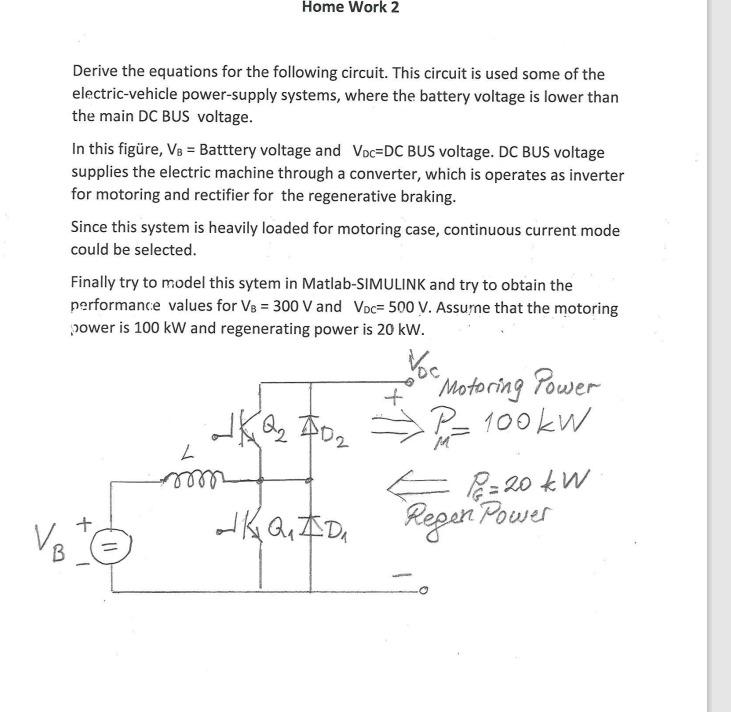 Home Work 2
Derive the equations for the following circuit. This circuit is used some of the
electric-vehicle power-supply systems, where the battery voltage is lower than
the main DC BUS voltage.
In this figüre, VB = Batttery voltage and VDC=DC BUS voltage. DC BUS voltage
supplies the electric machine through a converter, which is operates as inverter
for motoring and rectifier for the regenerative braking.
Since this system is heavily loaded for motoring case, continuous current mode
could be selected.
Finally try to model this sytem in Matlab-SIMULINK and try to obtain the
performance values for VB = 300 V and VDC= 500 V. Assume that the motoring
power is 100 kW and regenerating power is 20 kW.
VDC
+ Motoring Power
Q2 D2 PM= 100kW
L
PG=20 kW
Regen Power
Q1 D1
VB + = −
−